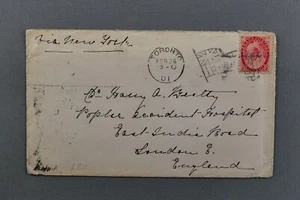 via New York.
TORONTO
FEB 26
01
Dr Harry A. Beatty
Poplar Accident Hospital
East India Road
London E.
England